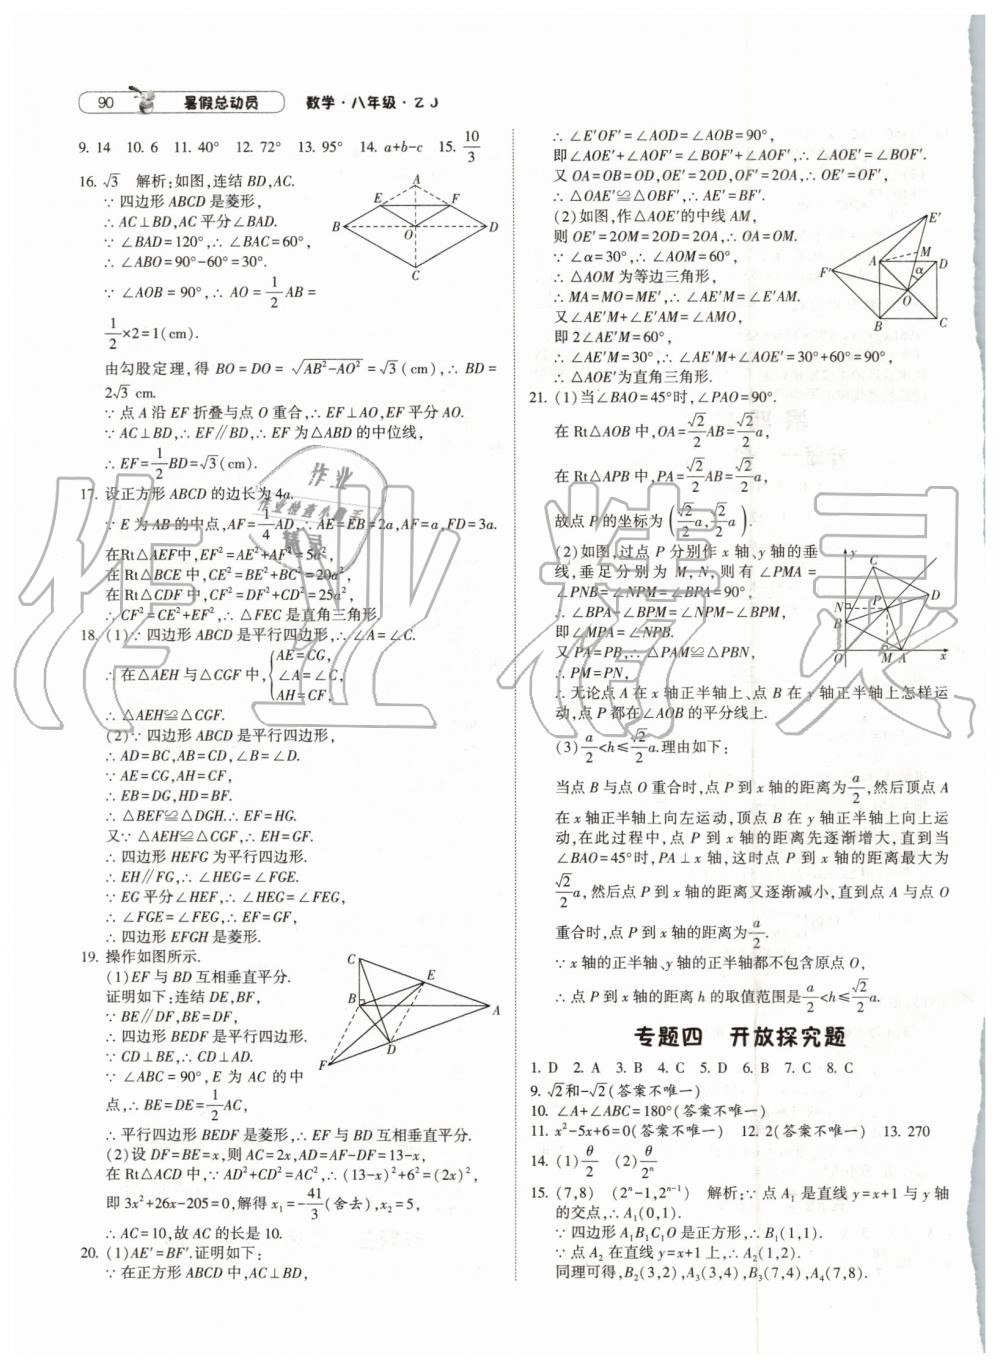 90 暑假总动员 数学·八年级·ZJ
9. 14 10. 6 11. 40° 12. 72° 13. 95° 14. a+b-c 15. 10/3
16. √3 解析:如图,连结BD,AC.
∵四边形ABCD是菱形,
∴AC⊥BD,AC平分∠BAD.
∵∠BAD=120°,∴∠BAC=60°,
∴∠ABO=90°-60°=30°.
∵∠AOB=90°,∴AO=1/2AB=
1/2×2=1(cm).
由勾股定理,得BO=DO=√(AB²-AO²)=√3(cm),∴BD=
2√3 cm.
∵点A沿EF折叠与点O重合,∴EF⊥AO,EF平分AO.
∵AC⊥BD,∴EF∥BD,∴EF为△ABD的中位线,
∴EF=1/2BD=√3(cm).
17. 设正方形ABCD的边长为4a.
∵E为AB的中点,AF=1/4AD,∴AE=EB=2a,AF=a,FD=3a.
在Rt△AEF中,EF²=AE²+AF²=5a²,
在Rt△BCE中,CE²=BE²+BC²=20a²,
在Rt△CDF中,CF²=DF²+CD²=25a²,
∴CF²=CE²+EF²,∴△FEC是直角三角形.
18. (1)∵四边形ABCD是平行四边形,∴∠A=∠C.
∴在△AEH与△CGF中,{AE=CG,
∠A=∠C,
AH=CF,
∴△AEH≌△CGF.
(2)∵四边形ABCD是平行四边形,
∴AD=BC,AB=CD,∠B=∠D.
∵AE=CG,AH=CF,
∴EB=DG,HD=BF.
∴△BEF≌△DGH.∴EF=HG.
又∵△AEH≌△CGF,∴EH=GF.
∴四边形HEFG为平行四边形.
∴EH∥FG,∴∠HEG=∠FGE.
∵EG平分∠HEF,∴∠HEG=∠FEG,
∴∠FGE=∠FEG,∴EF=GF,
∴四边形EFGH是菱形.
19. 操作如图所示.
(1)EF与BD互相垂直平分.
证明如下:连结DE,BF,
∵BE∥DF,BE=DF,
∴四边形BEDF是平行四边形.
∵CD⊥BE,∴CD⊥AD.
∵∠ABC=90°,E为AC的中
点,∴BE=DE=1/2AC,
∴平行四边形BEDF是菱形,∴EF与BD互相垂直平分.
(2)设DF=BE=x,则AC=2x,AD=AF-DF=13-x,
在Rt△ACD中,∵AD²+CD²=AC²,∴(13-x)²+6²=(2x)²,
即3x²+26x-205=0,解得x₁=-41/3(舍去),x₂=5,
∴AC=10,故AC的长是10.
20. (1)AE′=BF′.证明如下:
∵在正方形ABCD中,AC⊥BD,
∴∠E′OF′=∠AOD=∠AOB=90°,
即∠AOE′+∠AOF′=∠BOF′+∠AOF′,∴∠AOE′=∠BOF′.
又OA=OB=OD,OE′=2OD,OF′=2OA,∴OE′=OF′,
∴△OAE′≌△OBF′,∴AE′=BF′.
(2)如图,作△AOE′的中线AM,
则OE′=2OM=2OD=2OA,∴OA=OM.
∵∠α=30°,∴∠AOM=60°,
∴△AOM为等边三角形,
∴MA=MO=ME′,∴∠AE′M=∠E′AM.
又∠AE′M+∠E′AM=∠AMO,
即2∠AE′M=60°,
∴∠AE′M=30°,∴∠AE′M+∠AOE′=30°+60°=90°,
∴△AOE′为直角三角形.
21. (1)当∠BAO=45°时,∠PAO=90°.
在Rt△AOB中,OA=√2/2AB=√2/2a,
在Rt△APB中,PA=√2/2AB=√2/2a,
故点P的坐标为(√2/2a,√2/2a).
(2)如图,过点P分别作x轴、y轴的垂
线,垂足分别为M,N,则有∠PMA=
∠PNB=∠NPM=∠BPA=90°,
∴∠BPA-∠BPM=∠NPM-∠BPM,
即∠MPA=∠NPB.
又PA=PB,∴△PAM≌△PBN,
∴PM=PN,
∴无论点A在x轴正半轴上、点B在y轴正半轴上怎样运
动,点P都在∠AOB的平分线上.
(3)a/2<h≤√2/2a.理由如下:
当点B与点O重合时,点P到x轴的距离为a/2,然后顶点A
在x轴正半轴上向左运动,顶点B在y轴正半轴上向上运
动,在此过程中,点P到x轴的距离先逐渐增大,直到当
∠BAO=45°时,PA⊥x轴,这时点P到x轴的距离最大为
√2/2a,然后点P到x轴的距离又逐渐减小,直到点A与点O
重合时,点P到x轴的距离为a/2.
∵x轴的正半轴、y轴的正半轴都不包含原点O,
∴点P到x轴的距离h的取值范围是a/2<h≤√2/2a.
专题四 开放探究题
1. D 2. A 3. B 4. C 5. D 6. B 7. C 8. C
9. √2和-√2(答案不唯一)
10. ∠A+∠ABC=180°(答案不唯一)
11. x²-5x+6=0(答案不唯一) 12. 2(答案不唯一) 13. 270
14. (1)θ/2 (2)θ/2ⁿ
15. (7,8) (2ⁿ-1,2ⁿ⁻¹) 解析:∵点A₁是直线y=x+1与y轴
的交点,∴A₁(0,1).
∵四边形A₁B₁C₁O是正方形,∴B₁(1,1).
∵点A₂在直线y=x+1上,∴A₂(1,2).
同理可得,B₂(3,2),A₃(3,4),B₃(7,4),A₄(7,8).